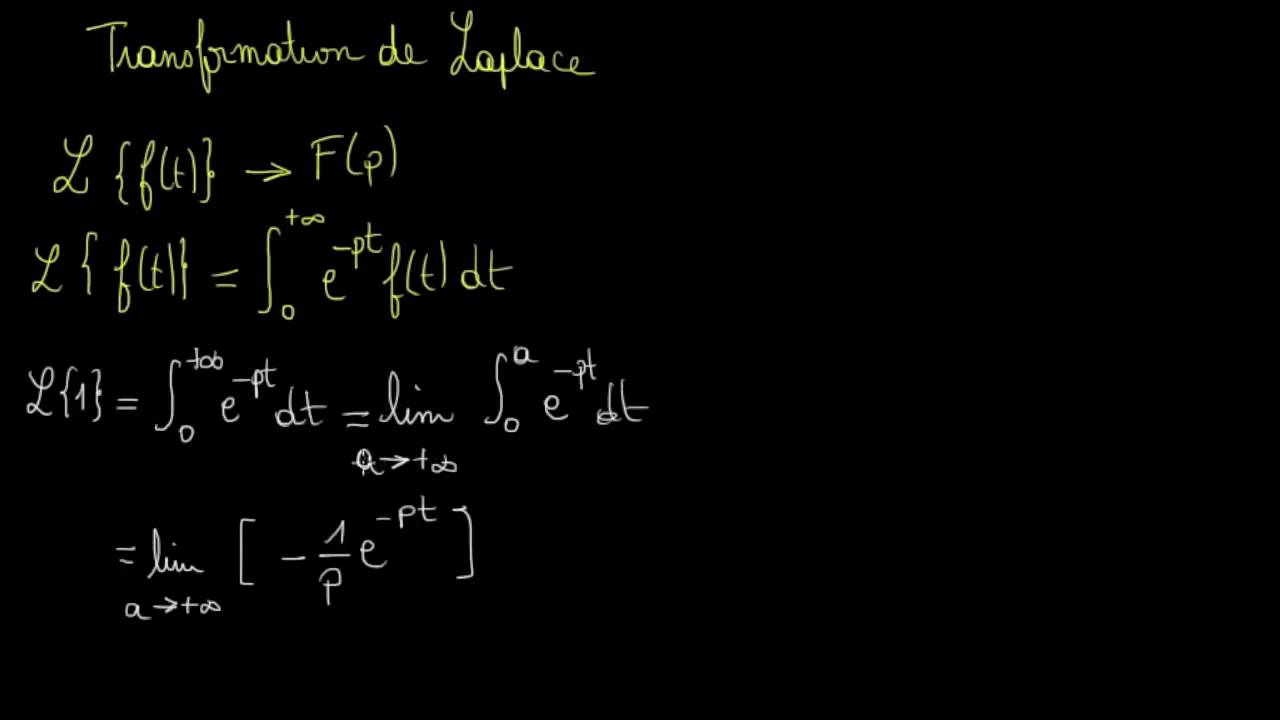 Transformation de Laplace
ℒ {f(t)} → F(p)
ℒ{f(t)} = ∫₀^{+∞} e^{-pt} f(t) dt
ℒ{1} = ∫₀^{+∞} e^{-pt} dt = lim_{a→+∞} ∫₀^{a} e^{-pt} dt
= lim_{a→+∞} [ -1/p e^{-pt} ]